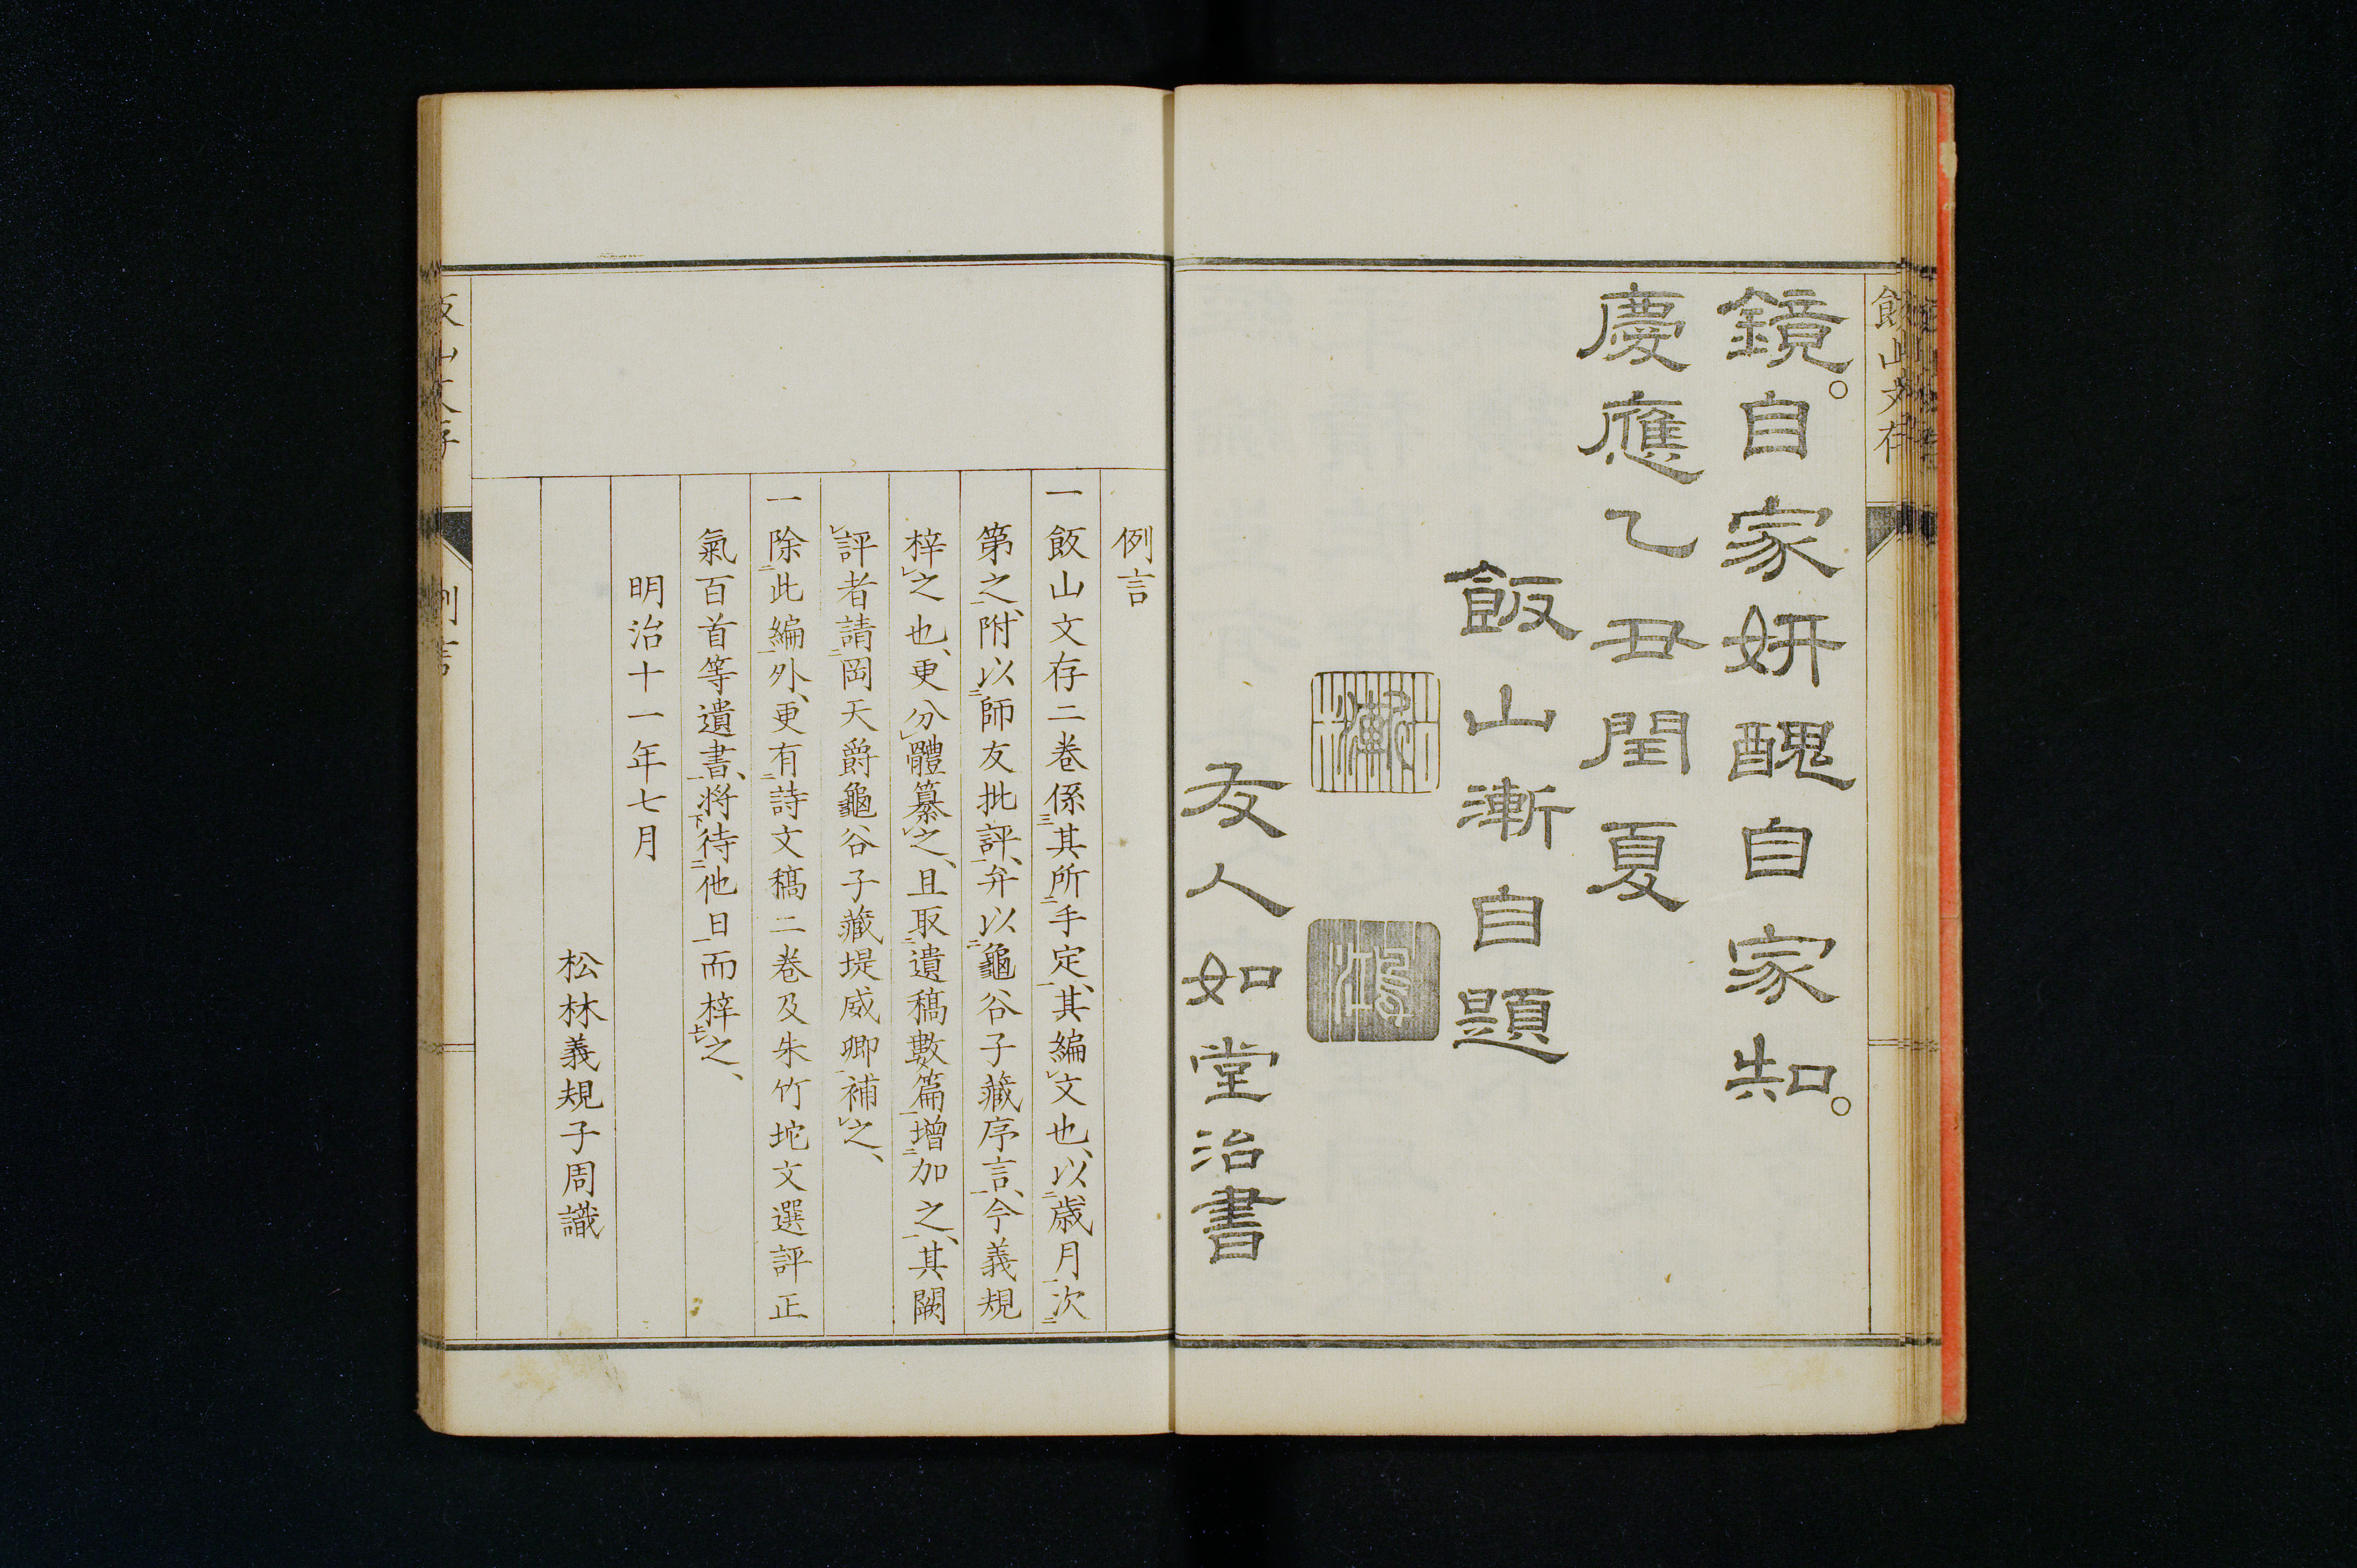 飯山文存
鏡。自家妍醜自家知。
慶應乙丑閏夏
飯山漸自題
友人如堂治書
例言
一飯山文存二巻係三其所二手定一、其編レ文也、以二歳月一次二
第之一、附以二師友批評一、弁以二龜谷子藏序言一、今義規
梓レ之也、更分レ體纂レ之、且取二遺稿數篇一増二加之一、其闕
レ評者請二岡天爵龜谷子藏堤威卿一補レ之、
一除二此編一外、更有二詩文稿二巻及朱竹坨文選評正
氣百首等遺書一、將下待二他日一而梓上レ之、
明治十一年七月
松林義規子周識